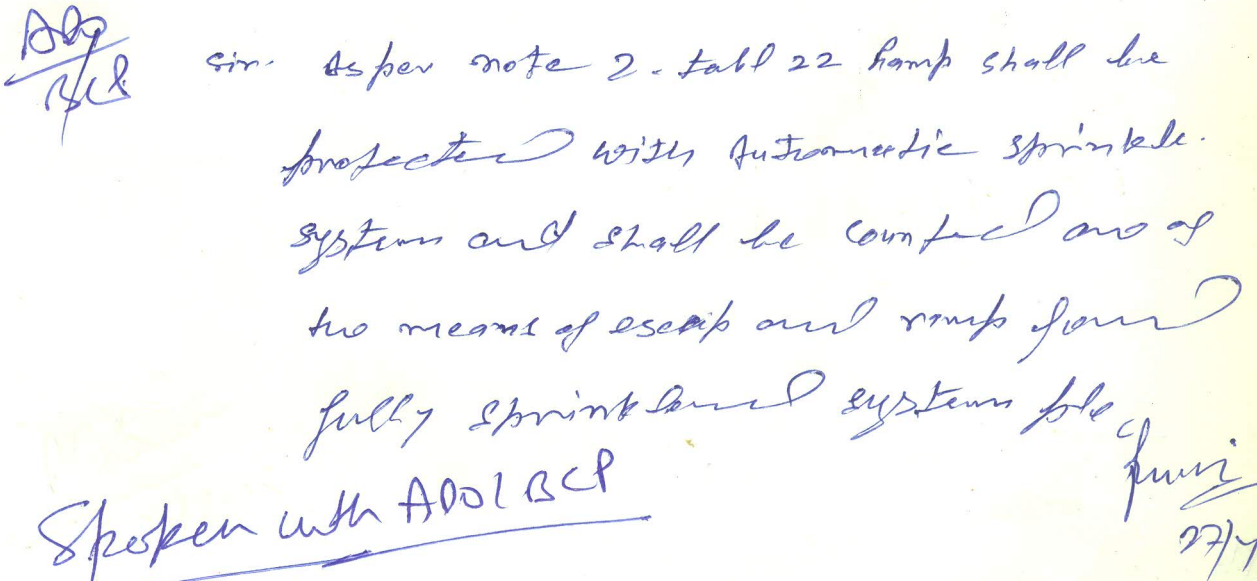 ADO
BCP
Sir. As per note 2. tabl 22 Ramp shall be
protected with Automatic sprinkle.
system and shall be counted as of
two means of escap and ramp found
fully sprinklered system ple
Spoken with ADO/BCP
27/